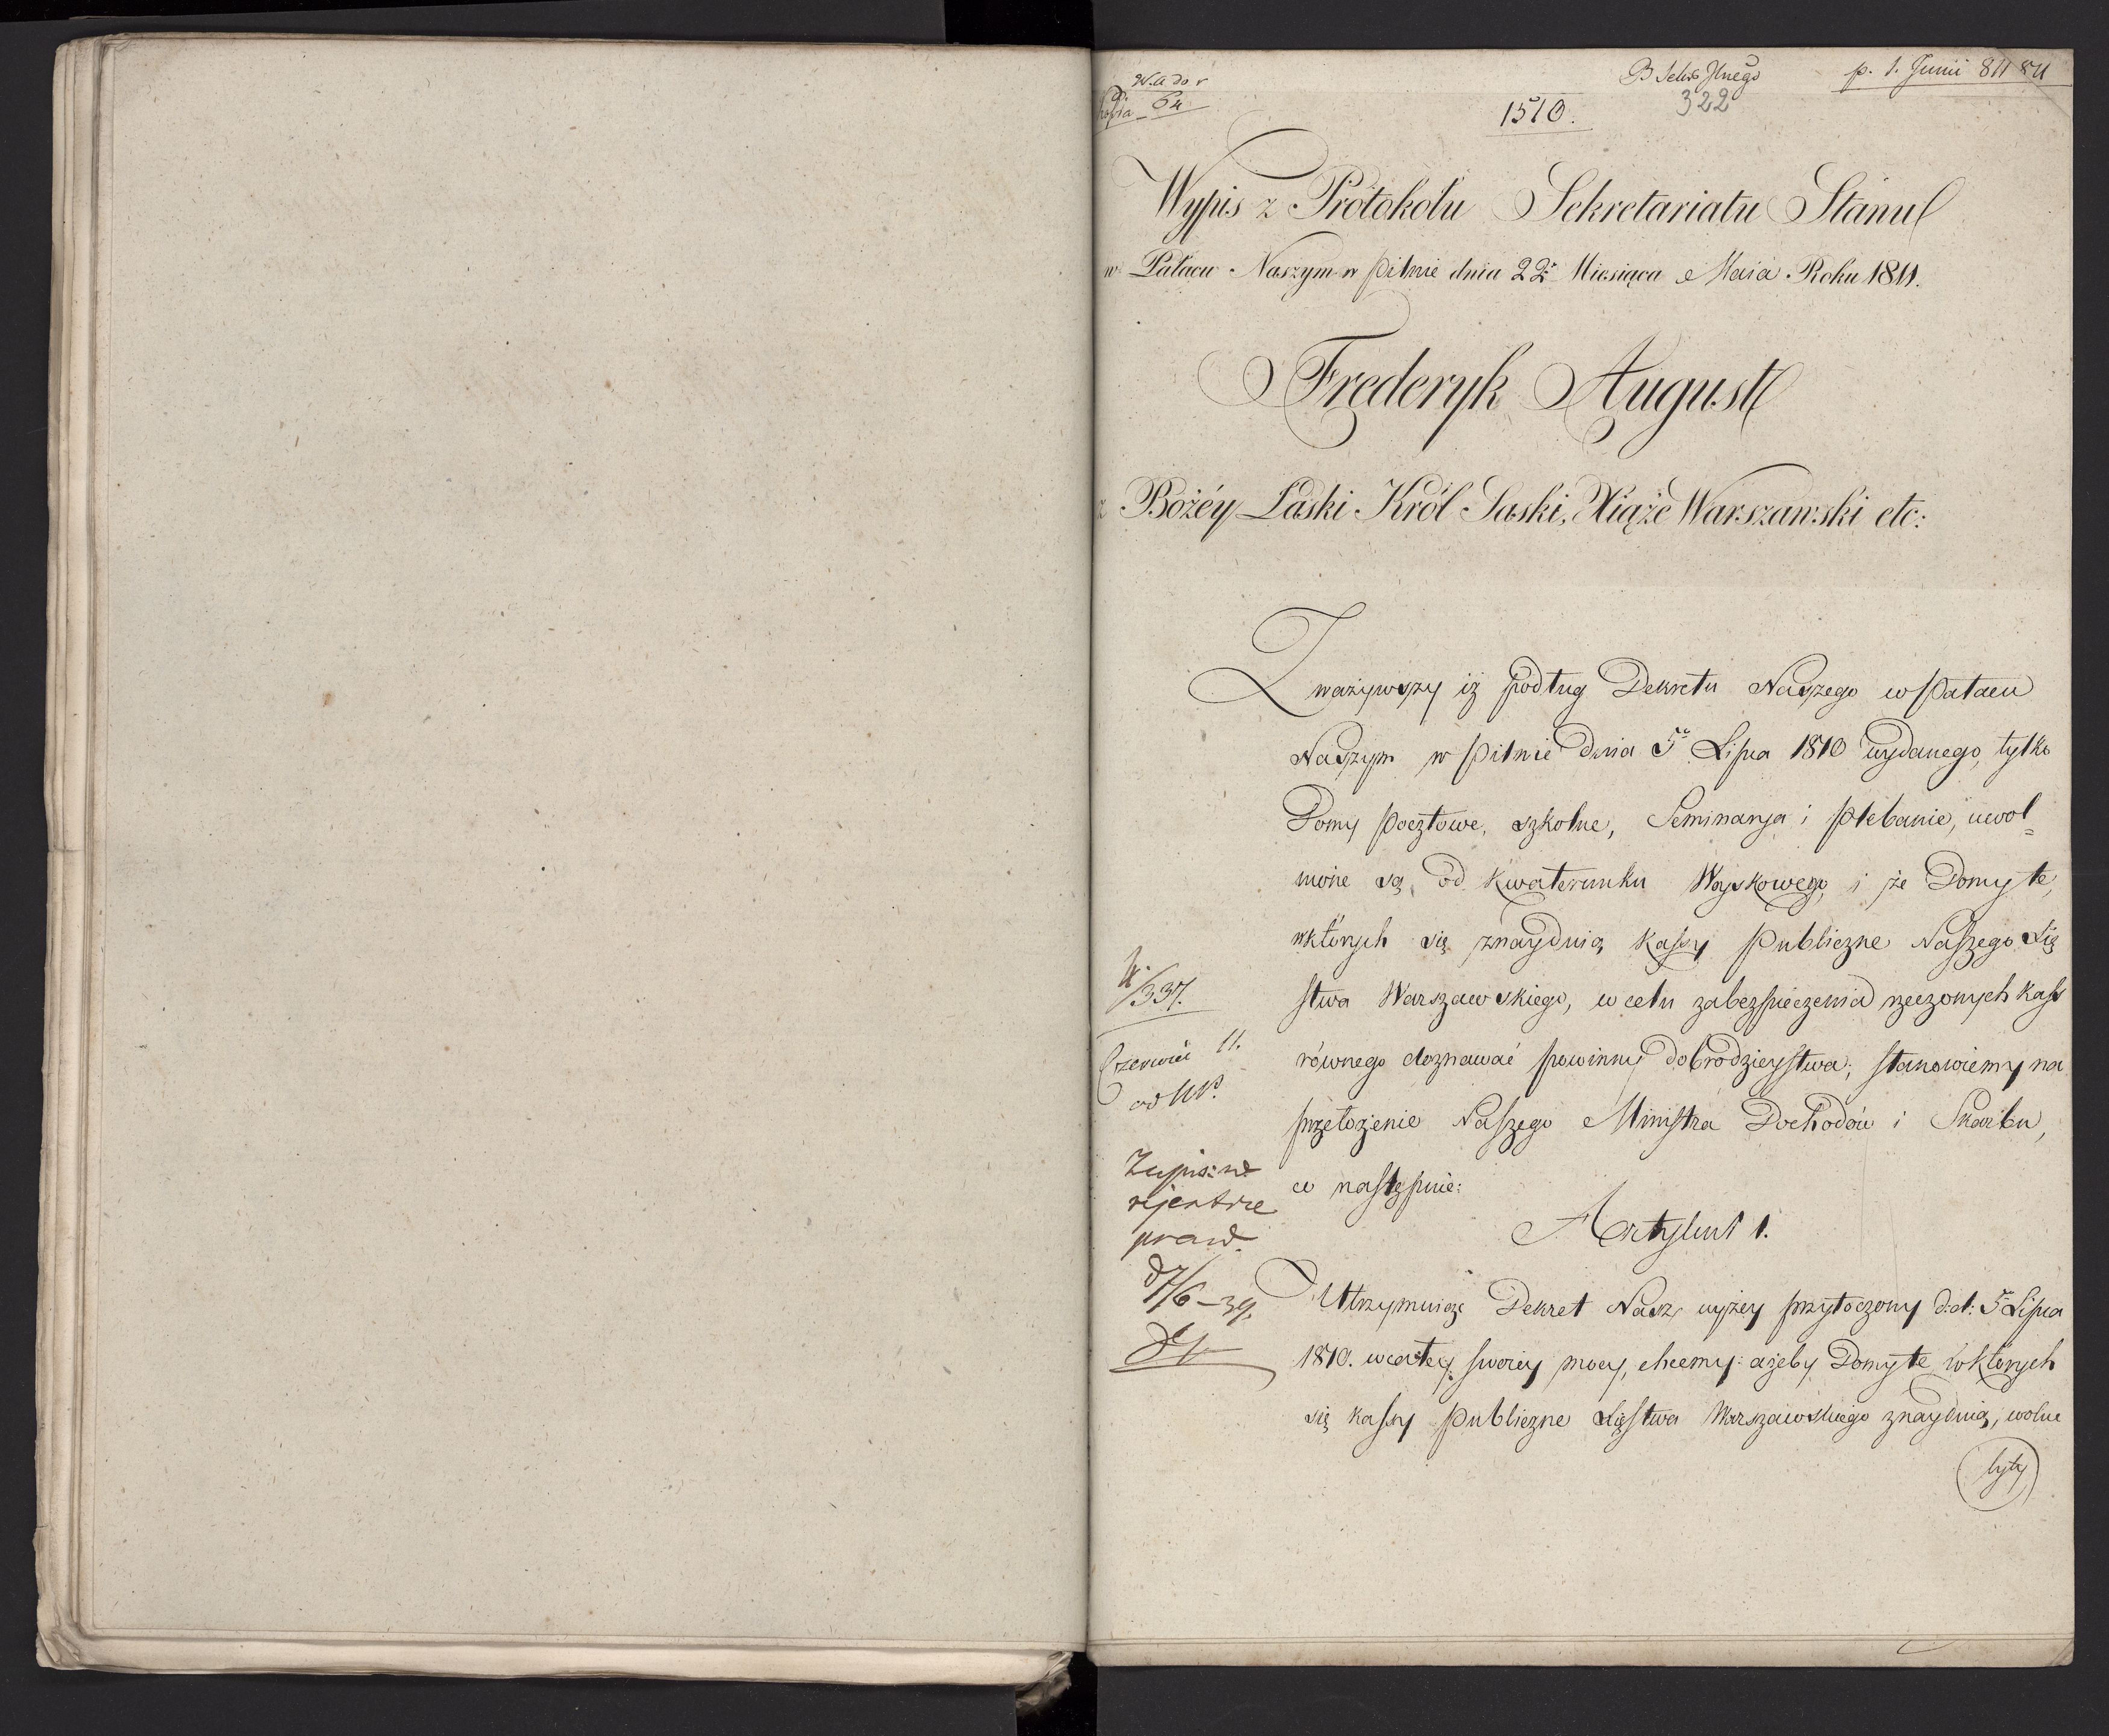 p. 1. Junii 811
322
1510.
64
Wypis z Protokołu Sekretariatu Stanu
w Pałacu Naszym w Pilnie dnia 22. Miesiąca Maia Roku 1811.
Frederyk August
z Bożéy Łaski Król Saski, Xiąże Warszawski etc:
Zważywszy iż podług Dekretu Naszego w Pałacu
Naszym w Pilnie dnia 5. Lipca 1810 wydanego, tylko
Domy pocztowe, szkolne, Seminarya i plebanie, uwol=
nione są od kwaterunku Woyskowego, i że Domy te,
w których się znayduią kassy Publiczne Naszego Xię
stwa Warszawskiego, w celu zabezpieczenia rzeczonych kass
równego doznawać powinny dobrodzieystwa; stanowiemy na
przełożenie Naszego Ministra Dochodów i Skarbu,
co następuie:
Artykuł 1.
Utrzymuiąc Dekret Nasz wyżey przytoczony d.d: 5. Lipca
1810. w całey swoiey mocy, chcemy: ażeby Domy te w których
się kassy Publiczne Xięstwa Warszawskiego znayduią, wolne
były
337.
Czerwiec 11.
Zapis: w
rejestrze
praw.
d 7/6 – 39.